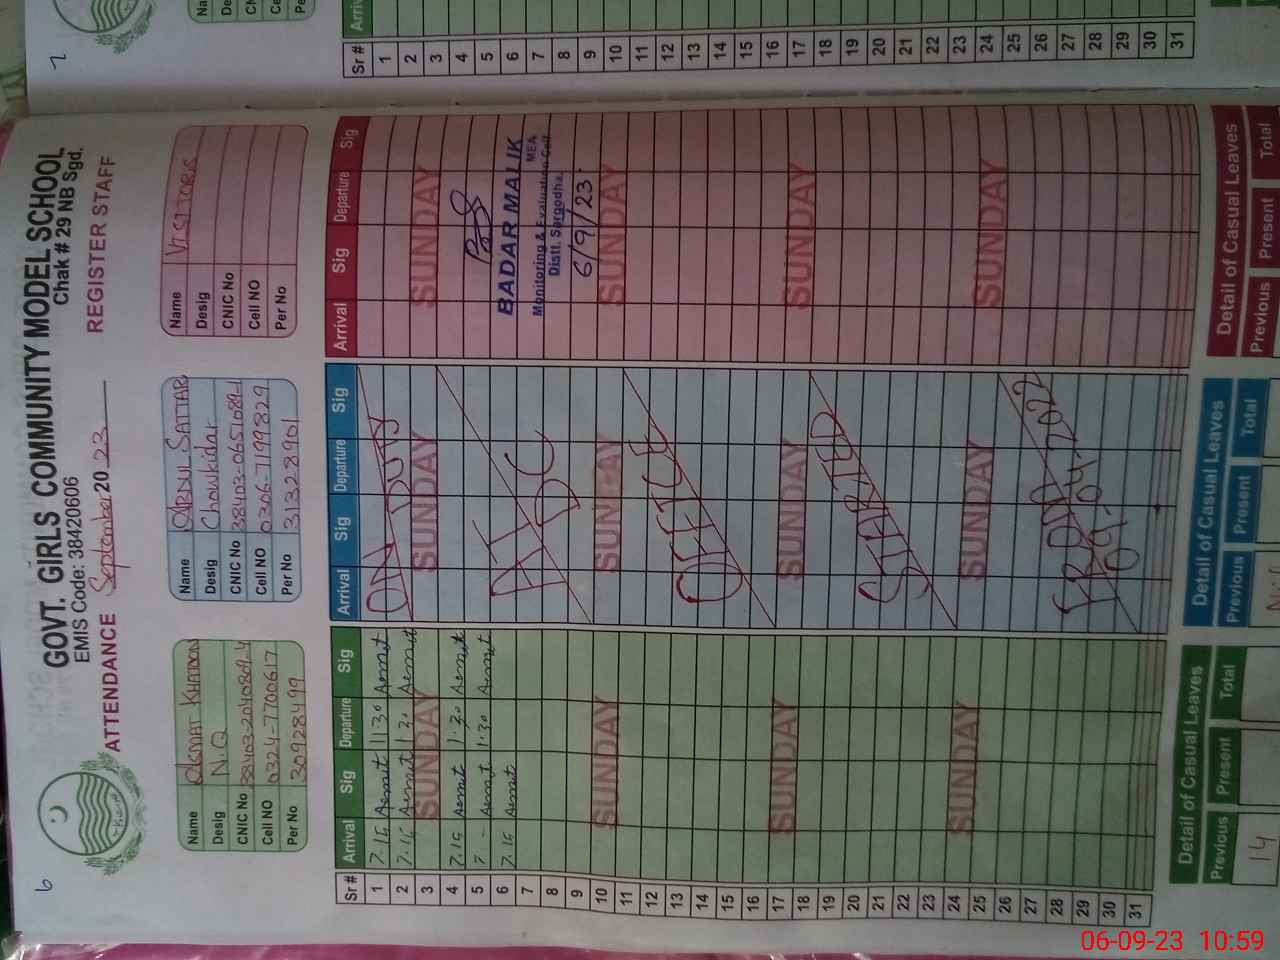 6
GOVT. GiRLS COMMUNITY MODEL SCHOOL
EMIS Code: 38420606
Chak # 29 NB Sgd.
ATTENDANCE September 2023 REGISTER STAFF
Name ASMAT KHATOON
Desig N.Q
CNIC No 38403-2040809-4
Cell NO 0324-7700617
Per No 30928499
Name ABDUL SATTAR
Desig Chowkidar
CNIC No 38403-0651089-1
Cell NO 0306-7199829
Per No 31328901
Name VISITORS
Desig
CNIC No
Cell NO
Per No
Sr # Arrival Sig Departure Sig Arrival Sig Departure Sig Arrival Sig Departure Sig
1 7.15 Asmat 11:30 Asmat
2 7.15 Asmat 1:30 Asmat
3 SUNDAY SUNDAY SUNDAY
4 7.15 Asmat 1:30 Asmat
5 7 - Asmat 1:30 Asmat
6 7.15 Asmat
7
8
9
10 SUNDAY SUNDAY SUNDAY
11
12
13
14
15
16
17 SUNDAY SUNDAY SUNDAY
18
19
20
21
22
23
24 SUNDAY SUNDAY SUNDAY
25
26
27
28
29
30
31
ON DUTY
AT
DC
OFFICE
STARTED
FROM
09-04-2022
BADAR MALIK
MEA
Monitoring & Evaluation Cell
Distt. Sargodha.
6/9/23
Detail of Casual Leaves
Previous Present Total
14
Detail of Casual Leaves
Previous Present Total
Detail of Casual Leaves
Previous Present Total
7
Sr #
1
2
3
4
5
6
7
8
9
10
11
12
13
14
15
16
17
18
19
20
21
22
23
24
25
26
27
28
29
30
31
06-09-23 10:59